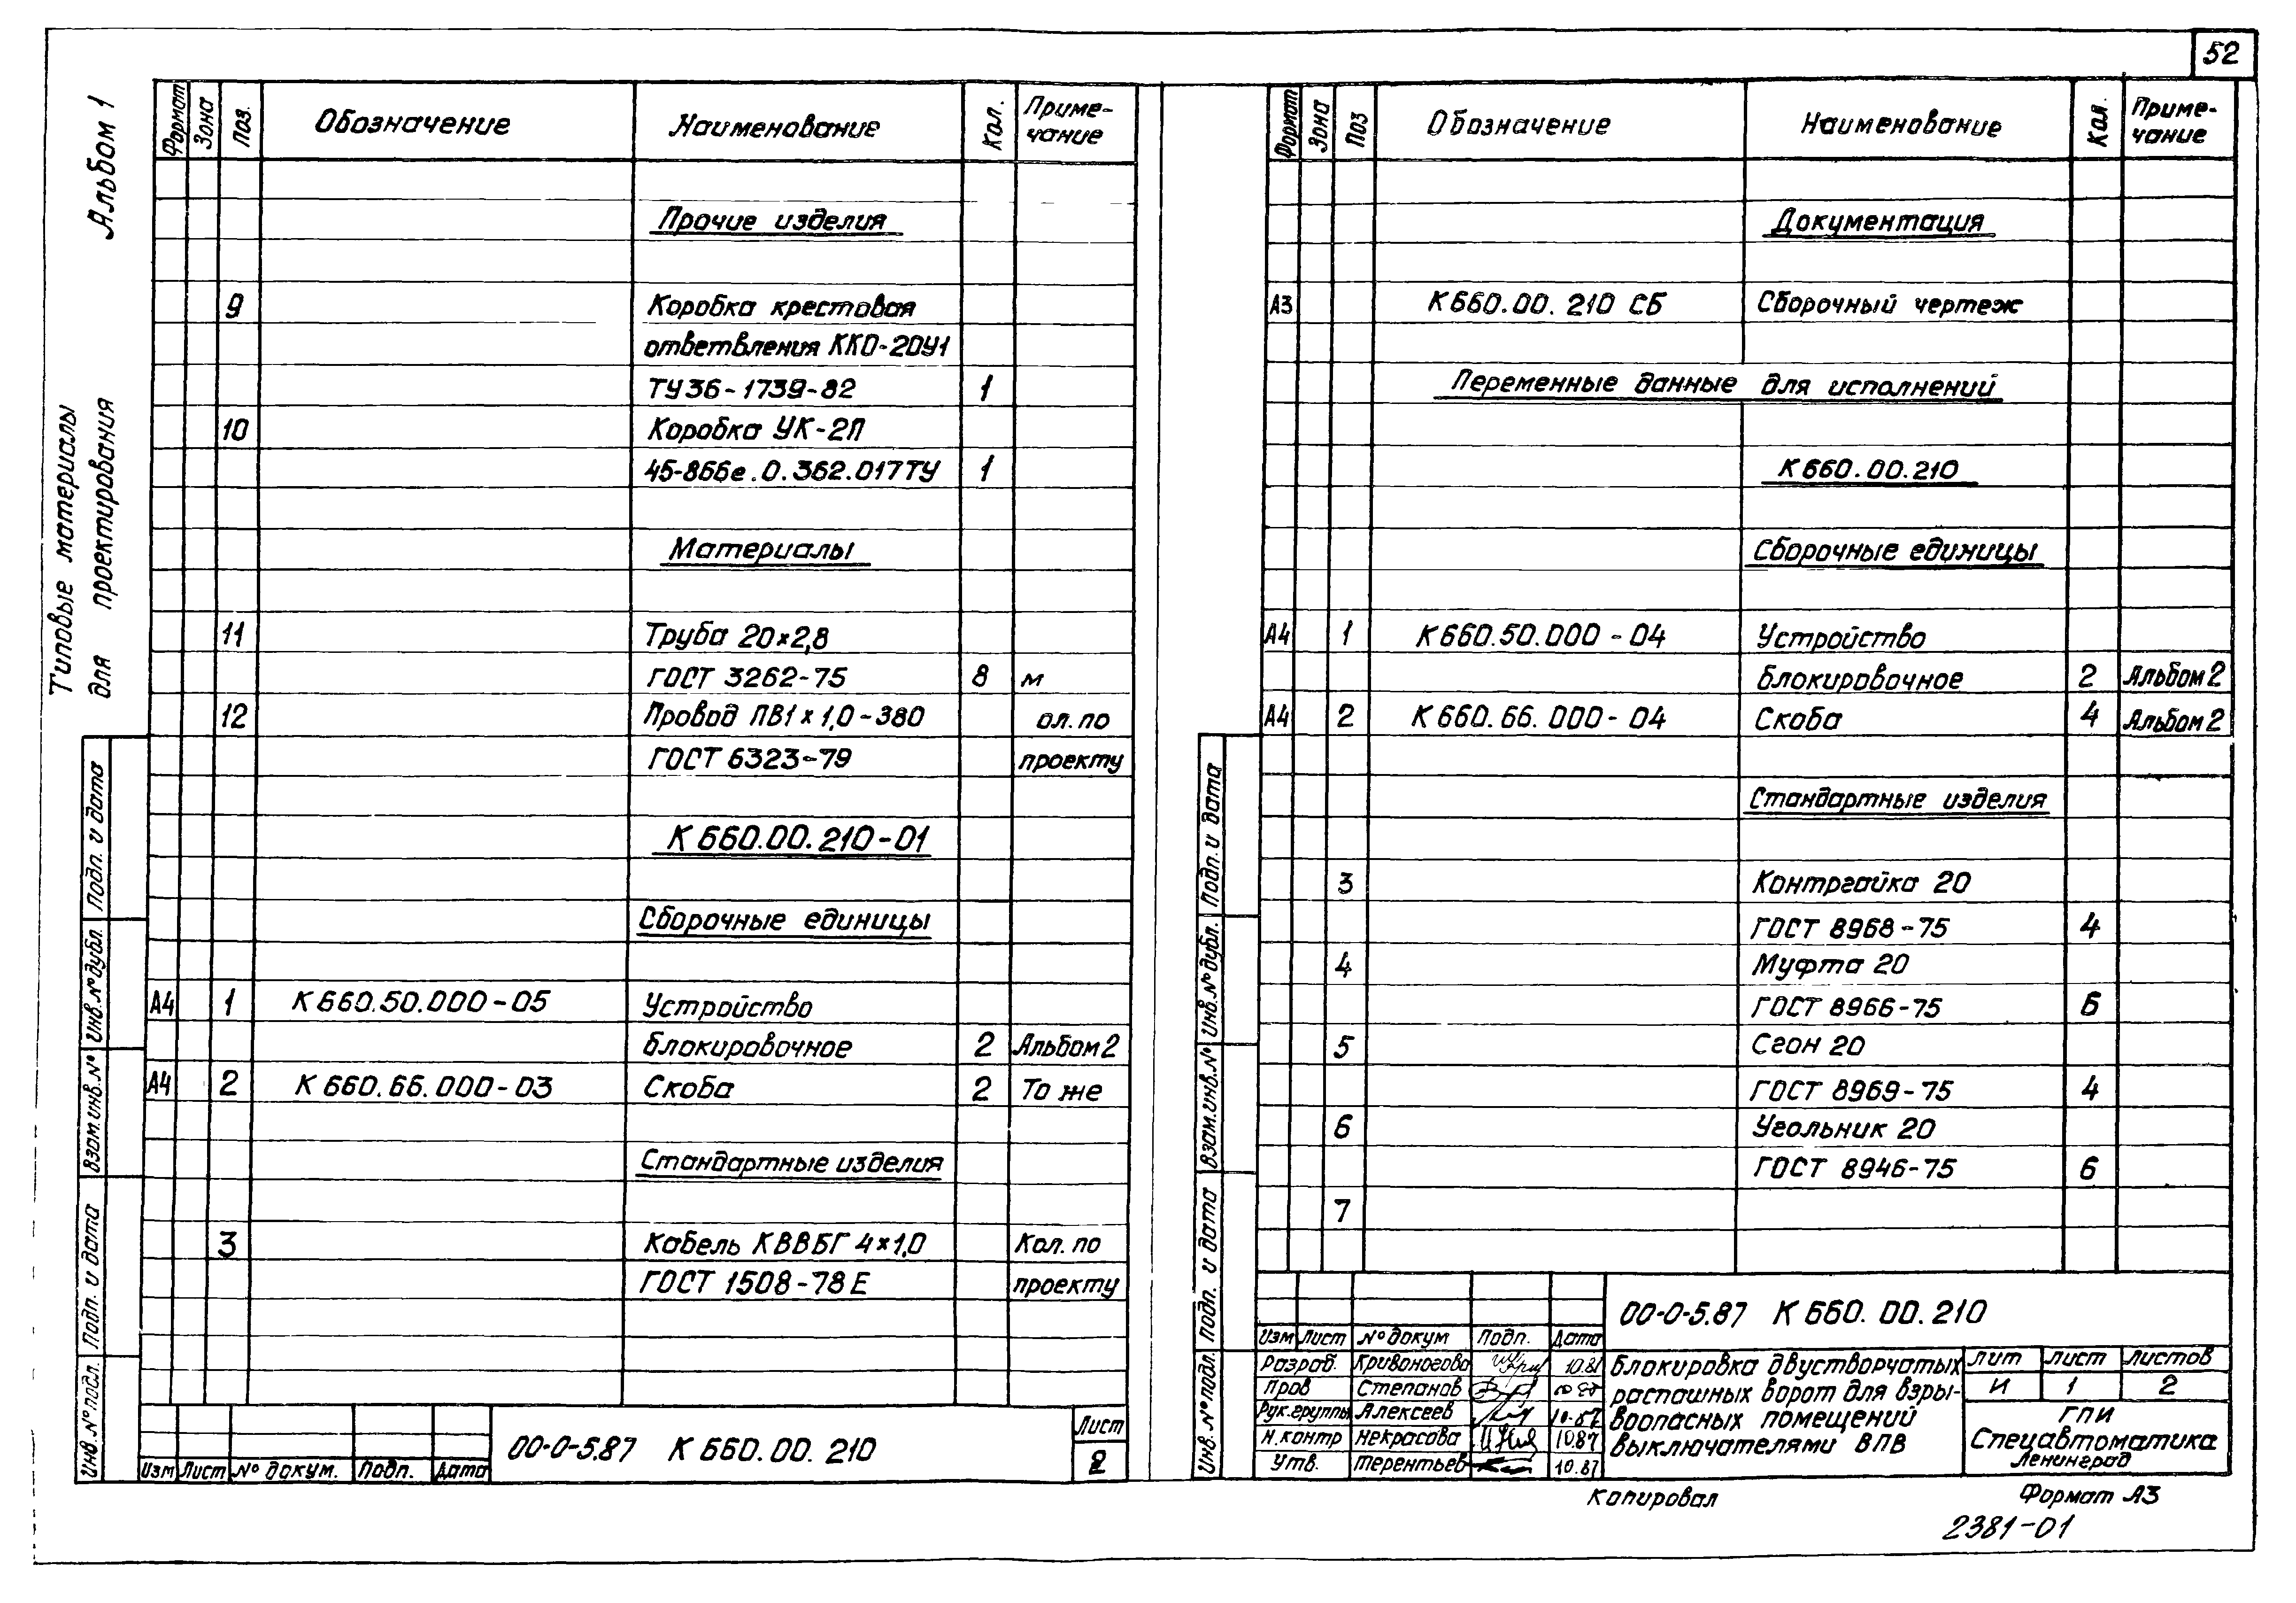 52
Альбом 1
Типовые материалы
для проектирования
Формат Зона Поз. Обозначение Наименование Кол. Приме-
чание
Прочие изделия
9 Коробка крестовая
ответвления ККО-20У1
ТУ36-1739-82 1
10 Коробка УК-2П
45-866е.0.362.017ТУ 1
Материалы
11 Труба 20×2,8
ГОСТ 3262-75 8 м
12 Провод ПВ1×1,0-380 ол. по
ГОСТ 6323-79 проекту
К660.00.210-01
Сборочные единицы
А4 1 К660.50.000-05 Устройство
блокировочное 2 Альбом 2
А4 2 К660.66.000-03 Скоба 2 То же
Стандартные изделия
3 Кабель КВВБГ 4×1,0 Кол. по
ГОСТ 1508-78Е проекту
Подп. и дата
Инв.№дубл.
Взам.инв.№
Подп. и дата
Инв.№подл.
Изм Лист № докум. Подп. Дата
00-0-5.87 К660.00.210
Лист
2
Формат Зона Поз Обозначение Наименование Кол. Приме-
чание
Документация
А3 К660.00.210 СБ Сборочный чертеж
Переменные данные для исполнений
К660.00.210
Сборочные единицы
А4 1 К660.50.000-04 Устройство
блокировочное 2 Альбом 2
А4 2 К660.66.000-04 Скоба 4 Альбом 2
Стандартные изделия
3 Контргайка 20
ГОСТ 8968-75 4
4 Муфта 20
ГОСТ 8966-75 6
5 Сгон 20
ГОСТ 8969-75 4
6 Угольник 20
ГОСТ 8946-75 6
7
Подп. и дата
Инв.№дубл.
Взам.инв.№
Подп. и дата
Инв.№подл.
00-0-5.87 К660.00.210
Изм Лист № докум Подп. Дата
Разраб. Кривоногова
Пров Степанов
Рук.группы Алексеев 10.87
Н.контр Некрасова 10.87
Утв. Терентьев 10.87
Блокировка двустворчатых
распашных ворот для взры-
воопасных помещений
выключателями ВПВ
Лит Лист Листов
И 1 2
ГПИ
Спецавтоматика
Ленинград
Копировал
Формат А3
2381-01